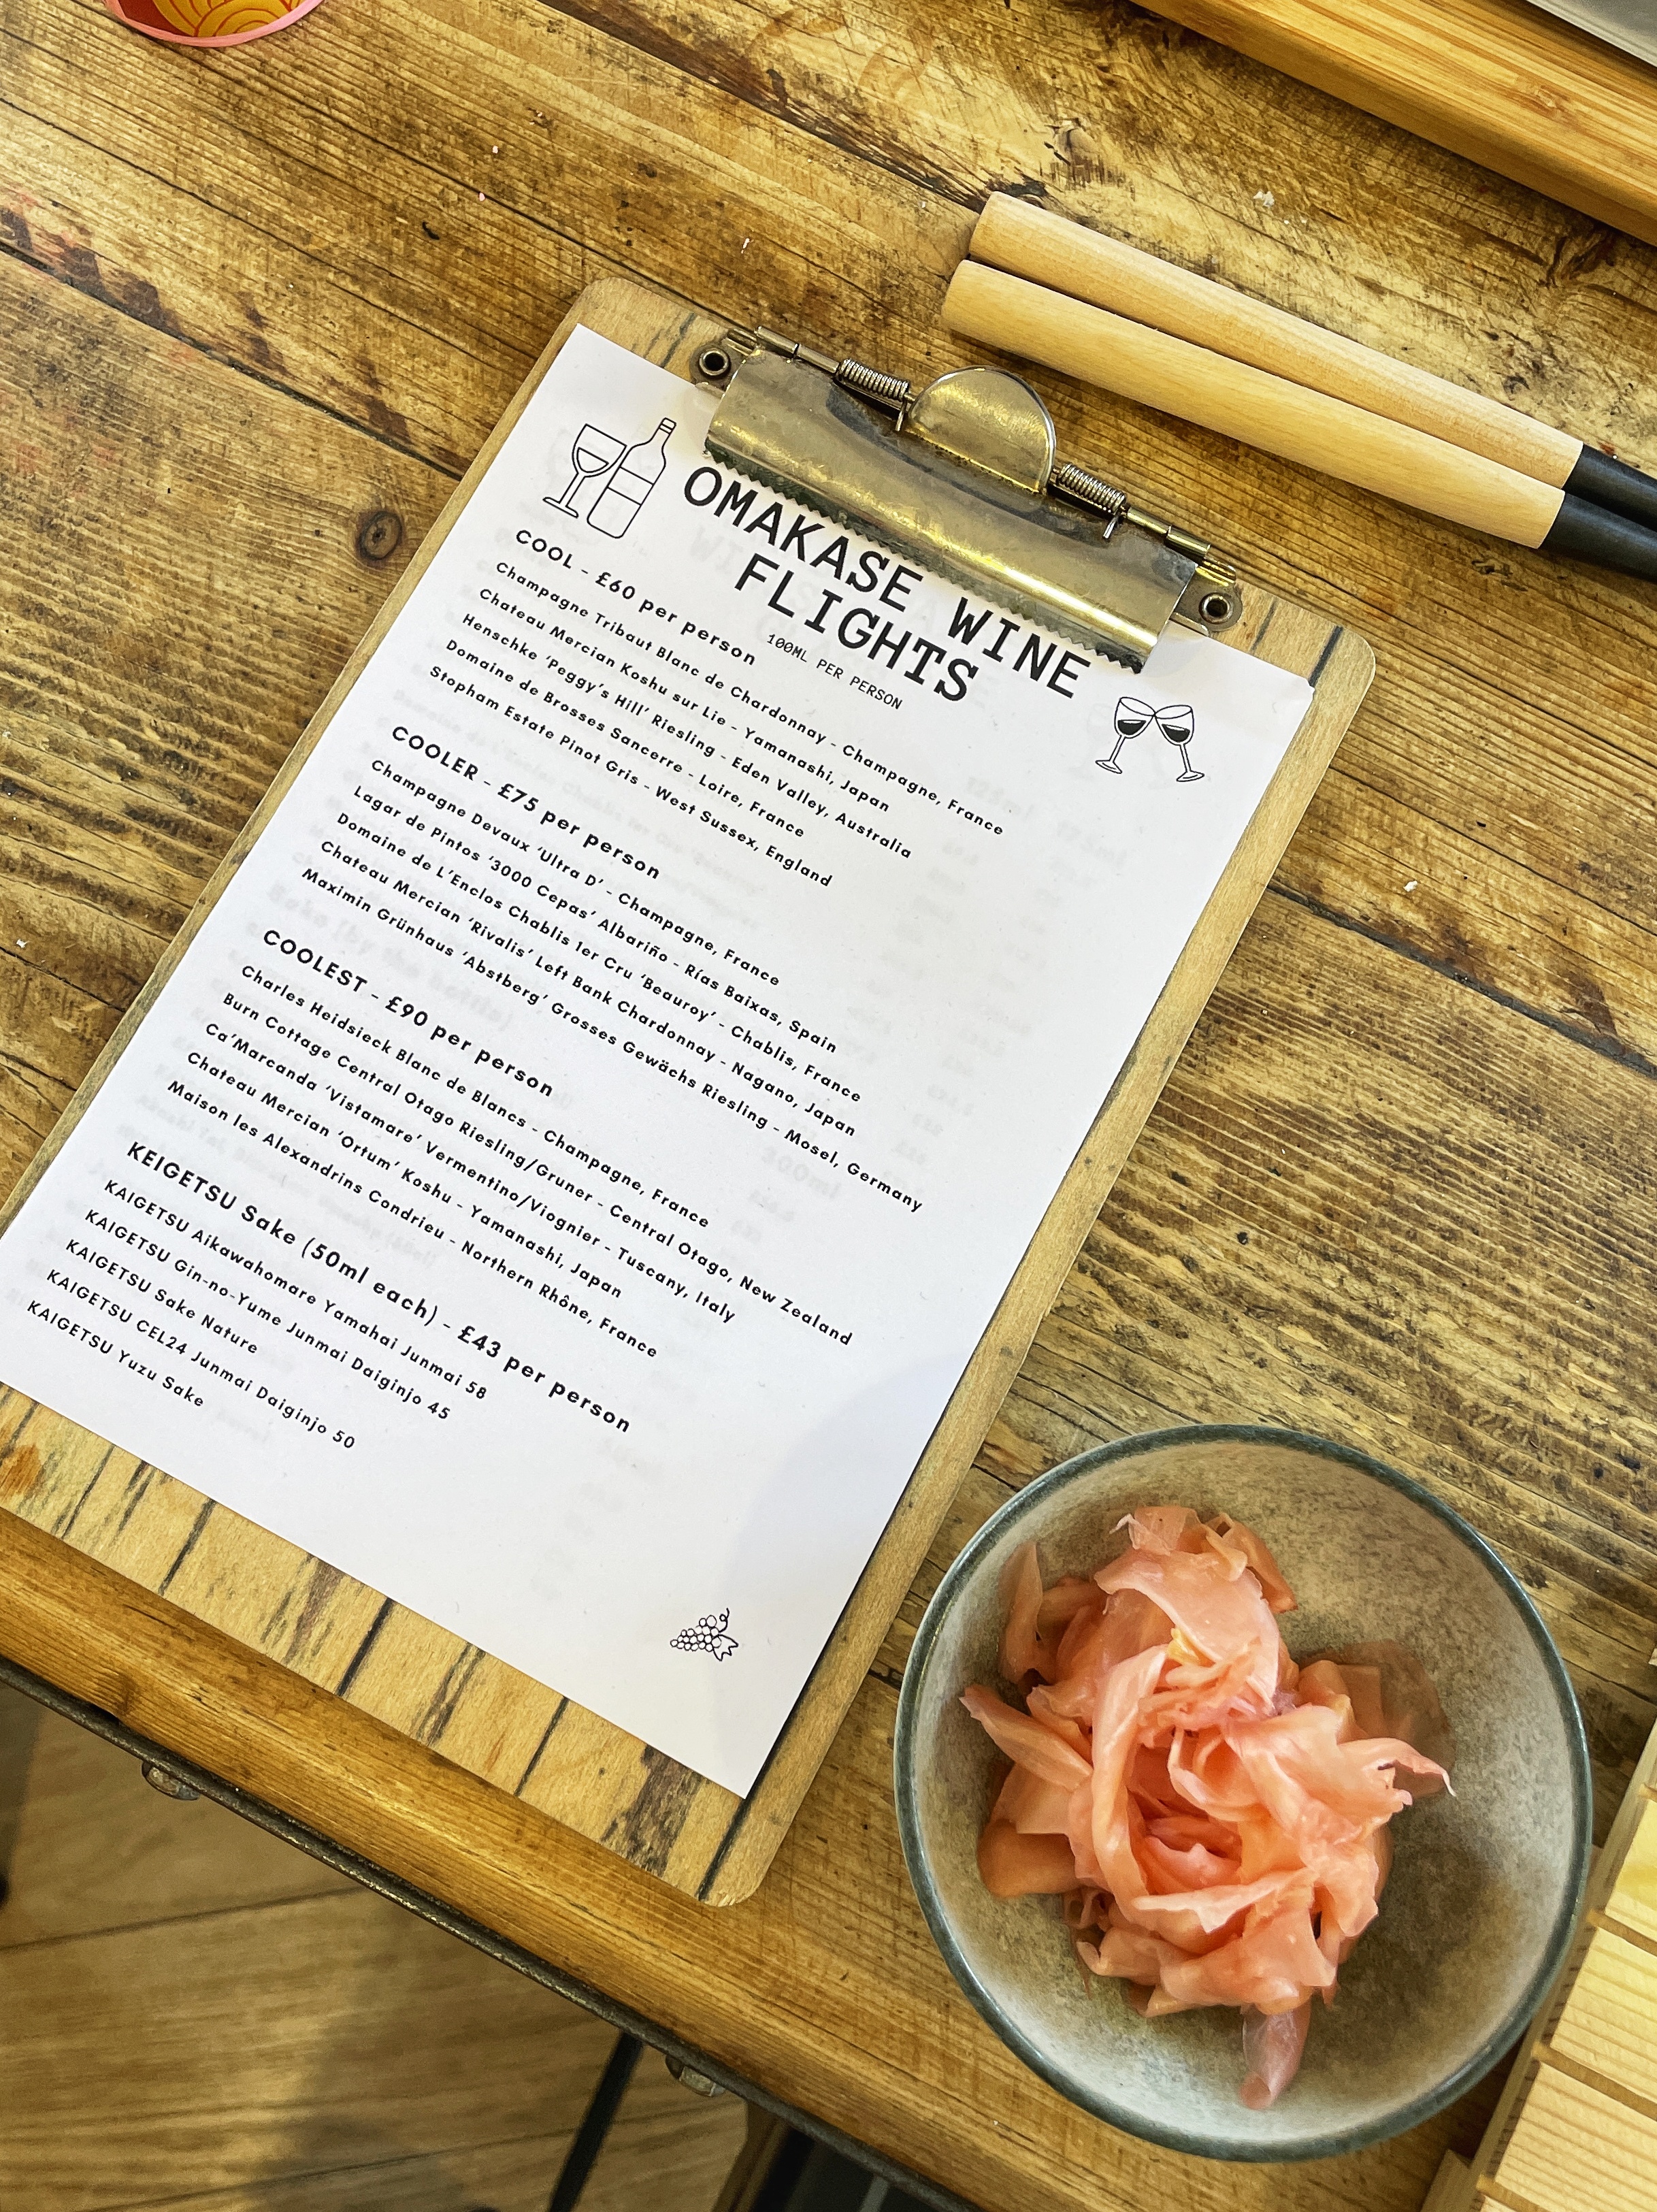 OMAKASE WINE
FLIGHTS
100ML PER PERSON
COOL - £60 per person
Champagne Tribaut Blanc de Chardonnay - Champagne, France
Chateau Mercian Koshu sur Lie - Yamanashi, Japan
Henschke ‘Peggy’s Hill’ Riesling - Eden Valley, Australia
Domaine de Brosses Sancerre - Loire, France
Stopham Estate Pinot Gris - West Sussex, England
COOLER - £75 per person
Champagne Devaux ‘Ultra D’ - Champagne, France
Lagar de Pintos ‘3000 Cepas’ Albariño - Rías Baixas, Spain
Domaine de L’Enclos Chablis 1er Cru ‘Beauroy’ - Chablis, France
Chateau Mercian ‘Rivalis’ Left Bank Chardonnay - Nagano, Japan
Maximin Grünhaus ‘Abstberg’ Grosses Gewächs Riesling - Mosel, Germany
COOLEST - £90 per person
Charles Heidsieck Blanc de Blancs - Champagne, France
Burn Cottage Central Otago Riesling/Gruner - Central Otago, New Zealand
Ca’Marcanda ‘Vistamare’ Vermentino/Viognier - Tuscany, Italy
Chateau Mercian ‘Ortum’ Koshu - Yamanashi, Japan
Maison les Alexandrins Condrieu - Northern Rhône, France
KEIGETSU Sake (50ml each) - £43 per person
KAIGETSU Aikawahomare Yamahai Junmai 58
KAIGETSU Gin-no-Yume Junmai Daiginjo 45
KAIGETSU Sake Nature
KAIGETSU CEL24 Junmai Daiginjo 50
KAIGETSU Yuzu Sake